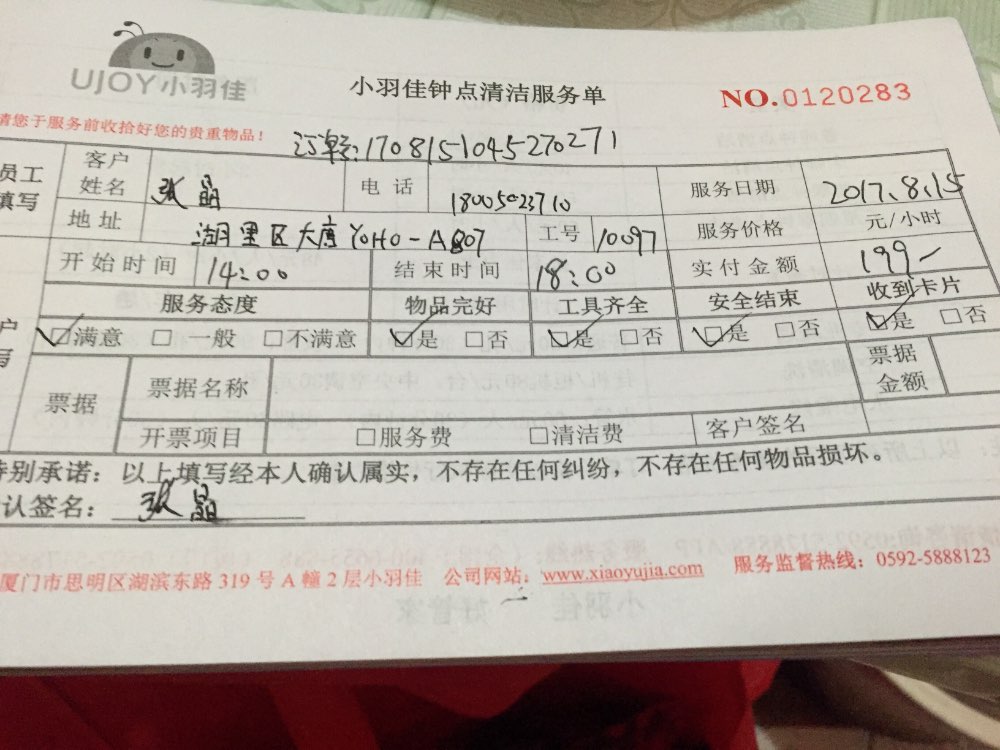 UJOY小羽佳
小羽佳钟点清洁服务单
NO.0120283
请您于服务前收拾好您的贵重物品！
订单:1708151045270271
员工
填写
客户
姓名
张晶
电 话
18005023710
服务日期
2017.8.15
地 址
湖里区大唐YOHO-A807
工号
10097
服务价格
元/小时
开始时间
14:00
结束时间
18:00
实付金额
199-
服务态度
物品完好
工具齐全
安全结束
收到卡片
户
写
☑满意 □一般 □不满意
☑是 □否
☑是 □否
☑是 □否
☑是 □否
票据
票据名称
票据
金额
开票项目
□服务费 □清洁费
客户签名
特别承诺：以上填写经本人确认属实，不存在任何纠纷，不存在任何物品损坏。
认签名：张晶
厦门市思明区湖滨东路 319 号 A 幢 2 层小羽佳 公司网站：www.xiaoyujia.com 服务监督热线：0592-5888123